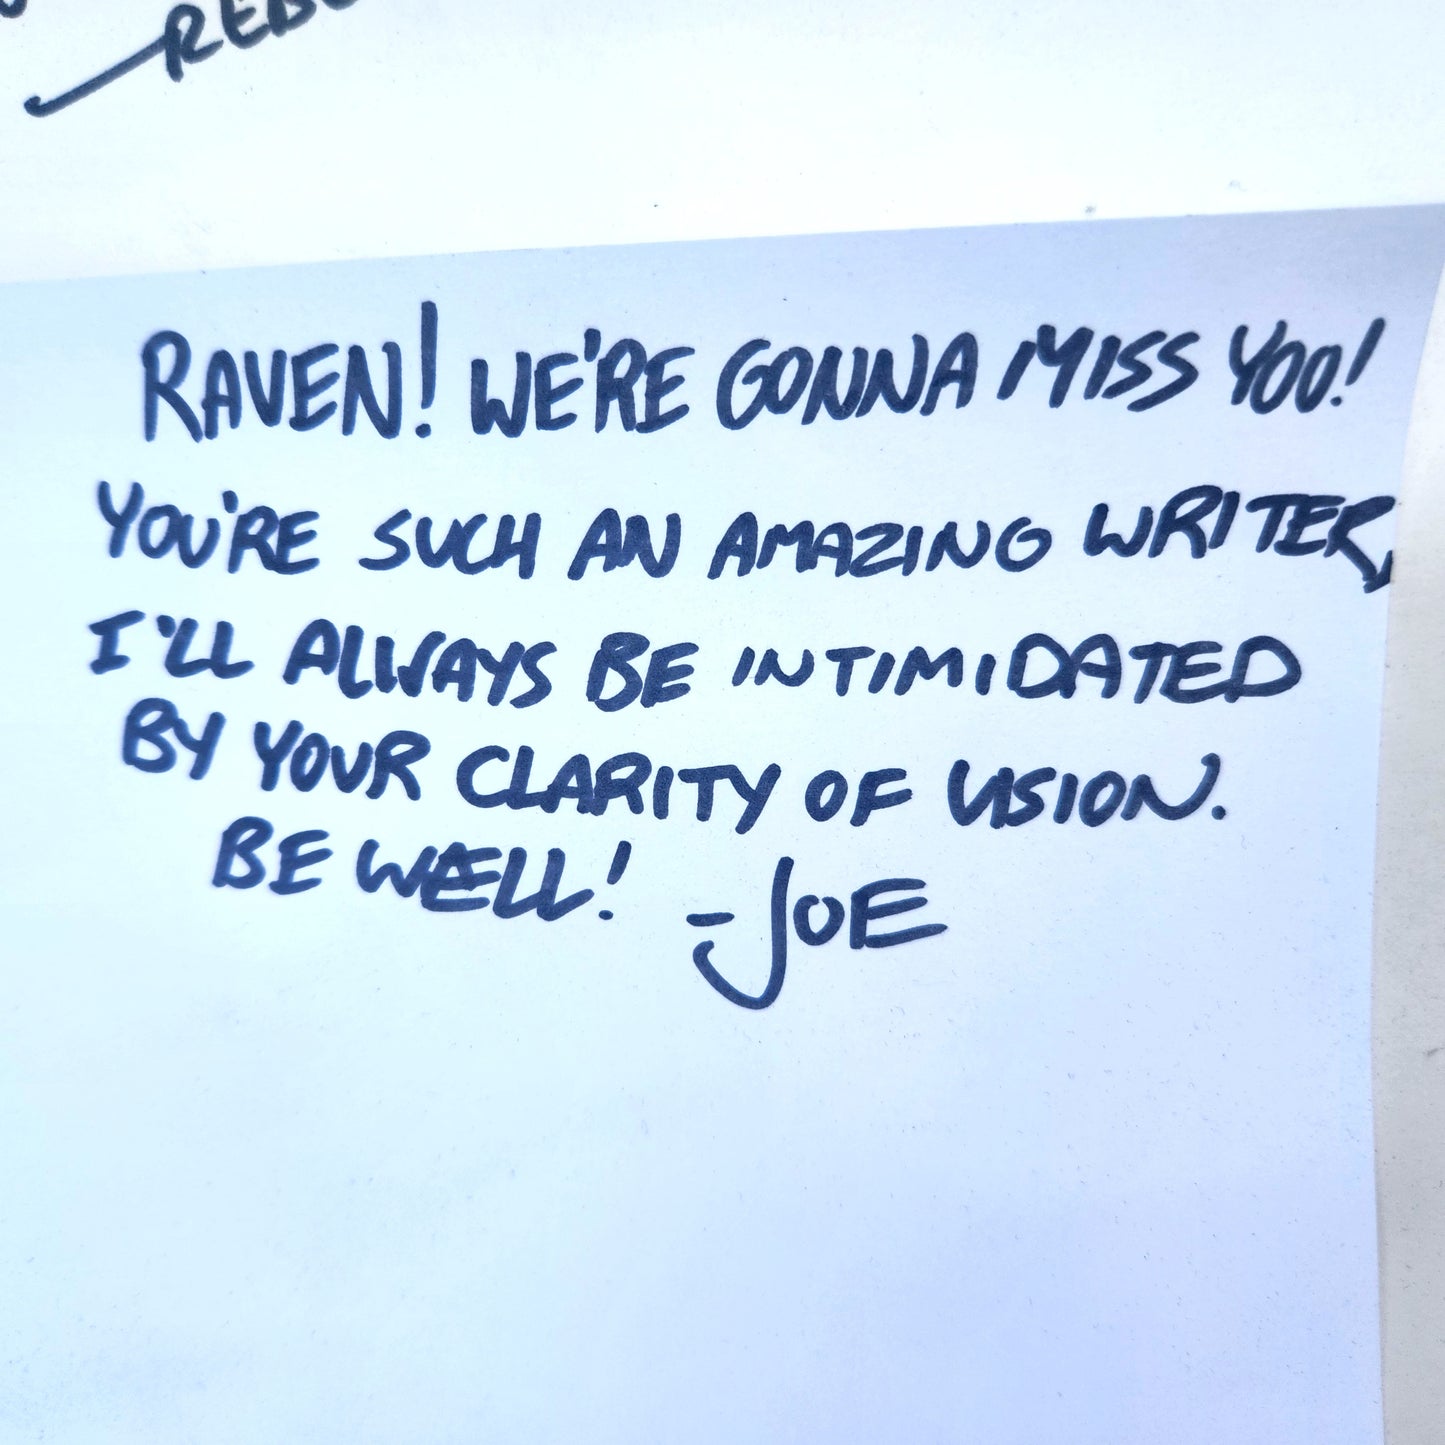 RAVEN! WE'RE GONNA MISS YOU!
YOU'RE SUCH AN AMAZING WRITER,
I'LL ALWAYS BE INTIMIDATED
BY YOUR CLARITY OF VISION.
BE WELL! -JOE